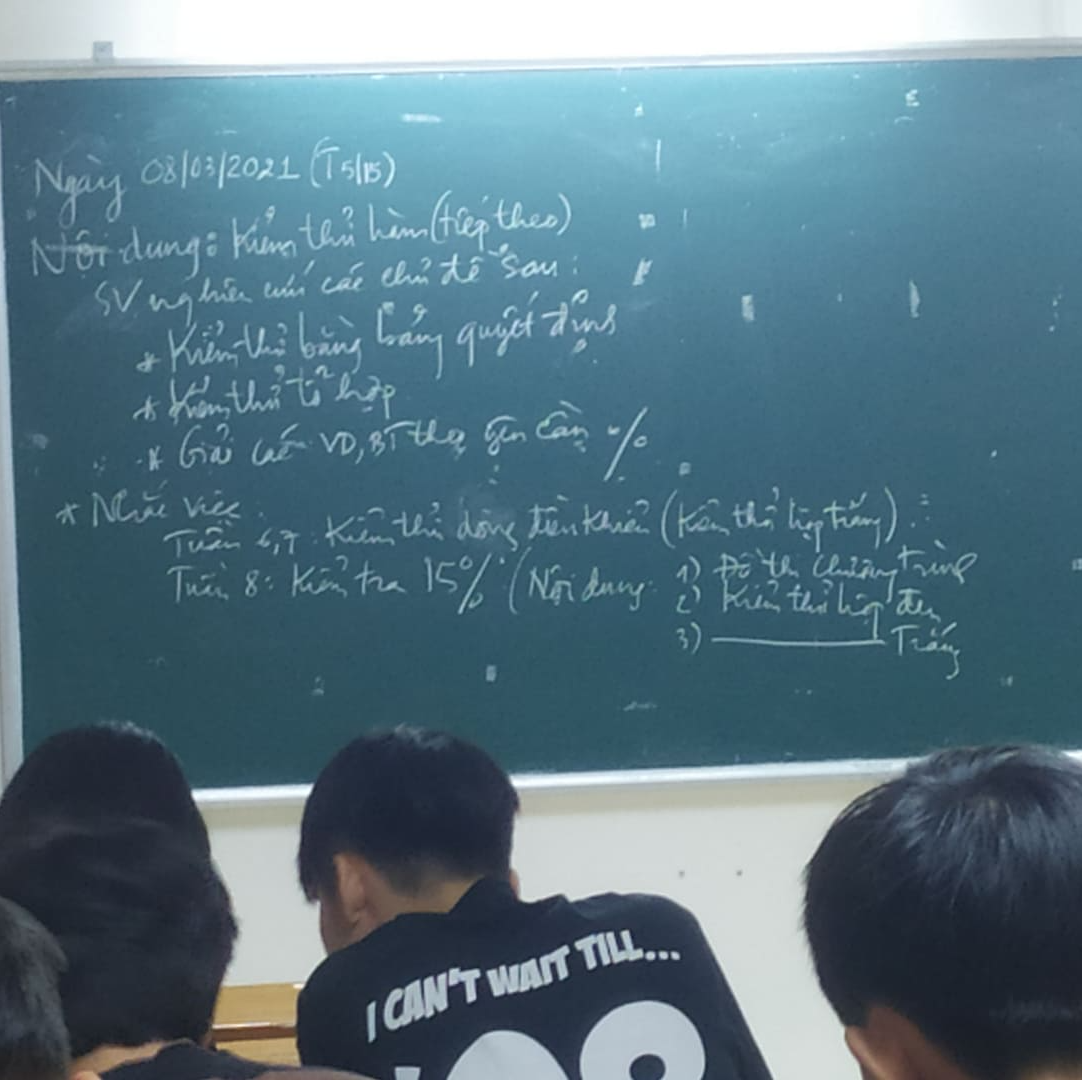 Ngày 08/03/2021 (T5/15)
Nội dung: Kiểm thử hàm (tiếp theo)
SV nghiên cứu các chủ đề sau:
* Kiểm thử bằng bảng quyết định
* Kiểm thử tổ hợp
* Giải các VD, BT theo yêu cầu %
* Nhắc việc
Tuần 6,7: Kiểm thử dòng điều khiển (Kiểm thử hộp trắng)
Tuần 8: Kiểm tra 15% (Nội dung: 1) Đồ thị chương trình
2) Kiểm thử hộp đen
3) ———— Trắng
I CAN'T WAIT TILL...